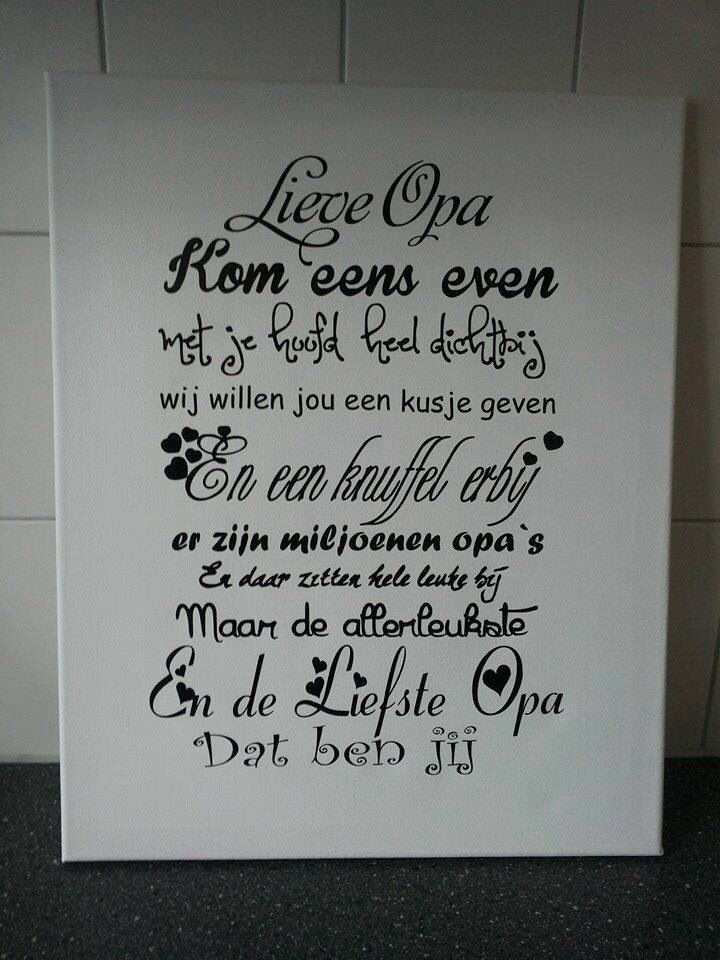 Lieve Opa
Kom eens even
met je hoofd heel dichtbij
wij willen jou een kusje geven
En een knuffel erbij
er zijn miljoenen opa`s
En daar zitten hele leuke bij
Maar de allerleukste
En de Liefste Opa
Dat ben jij